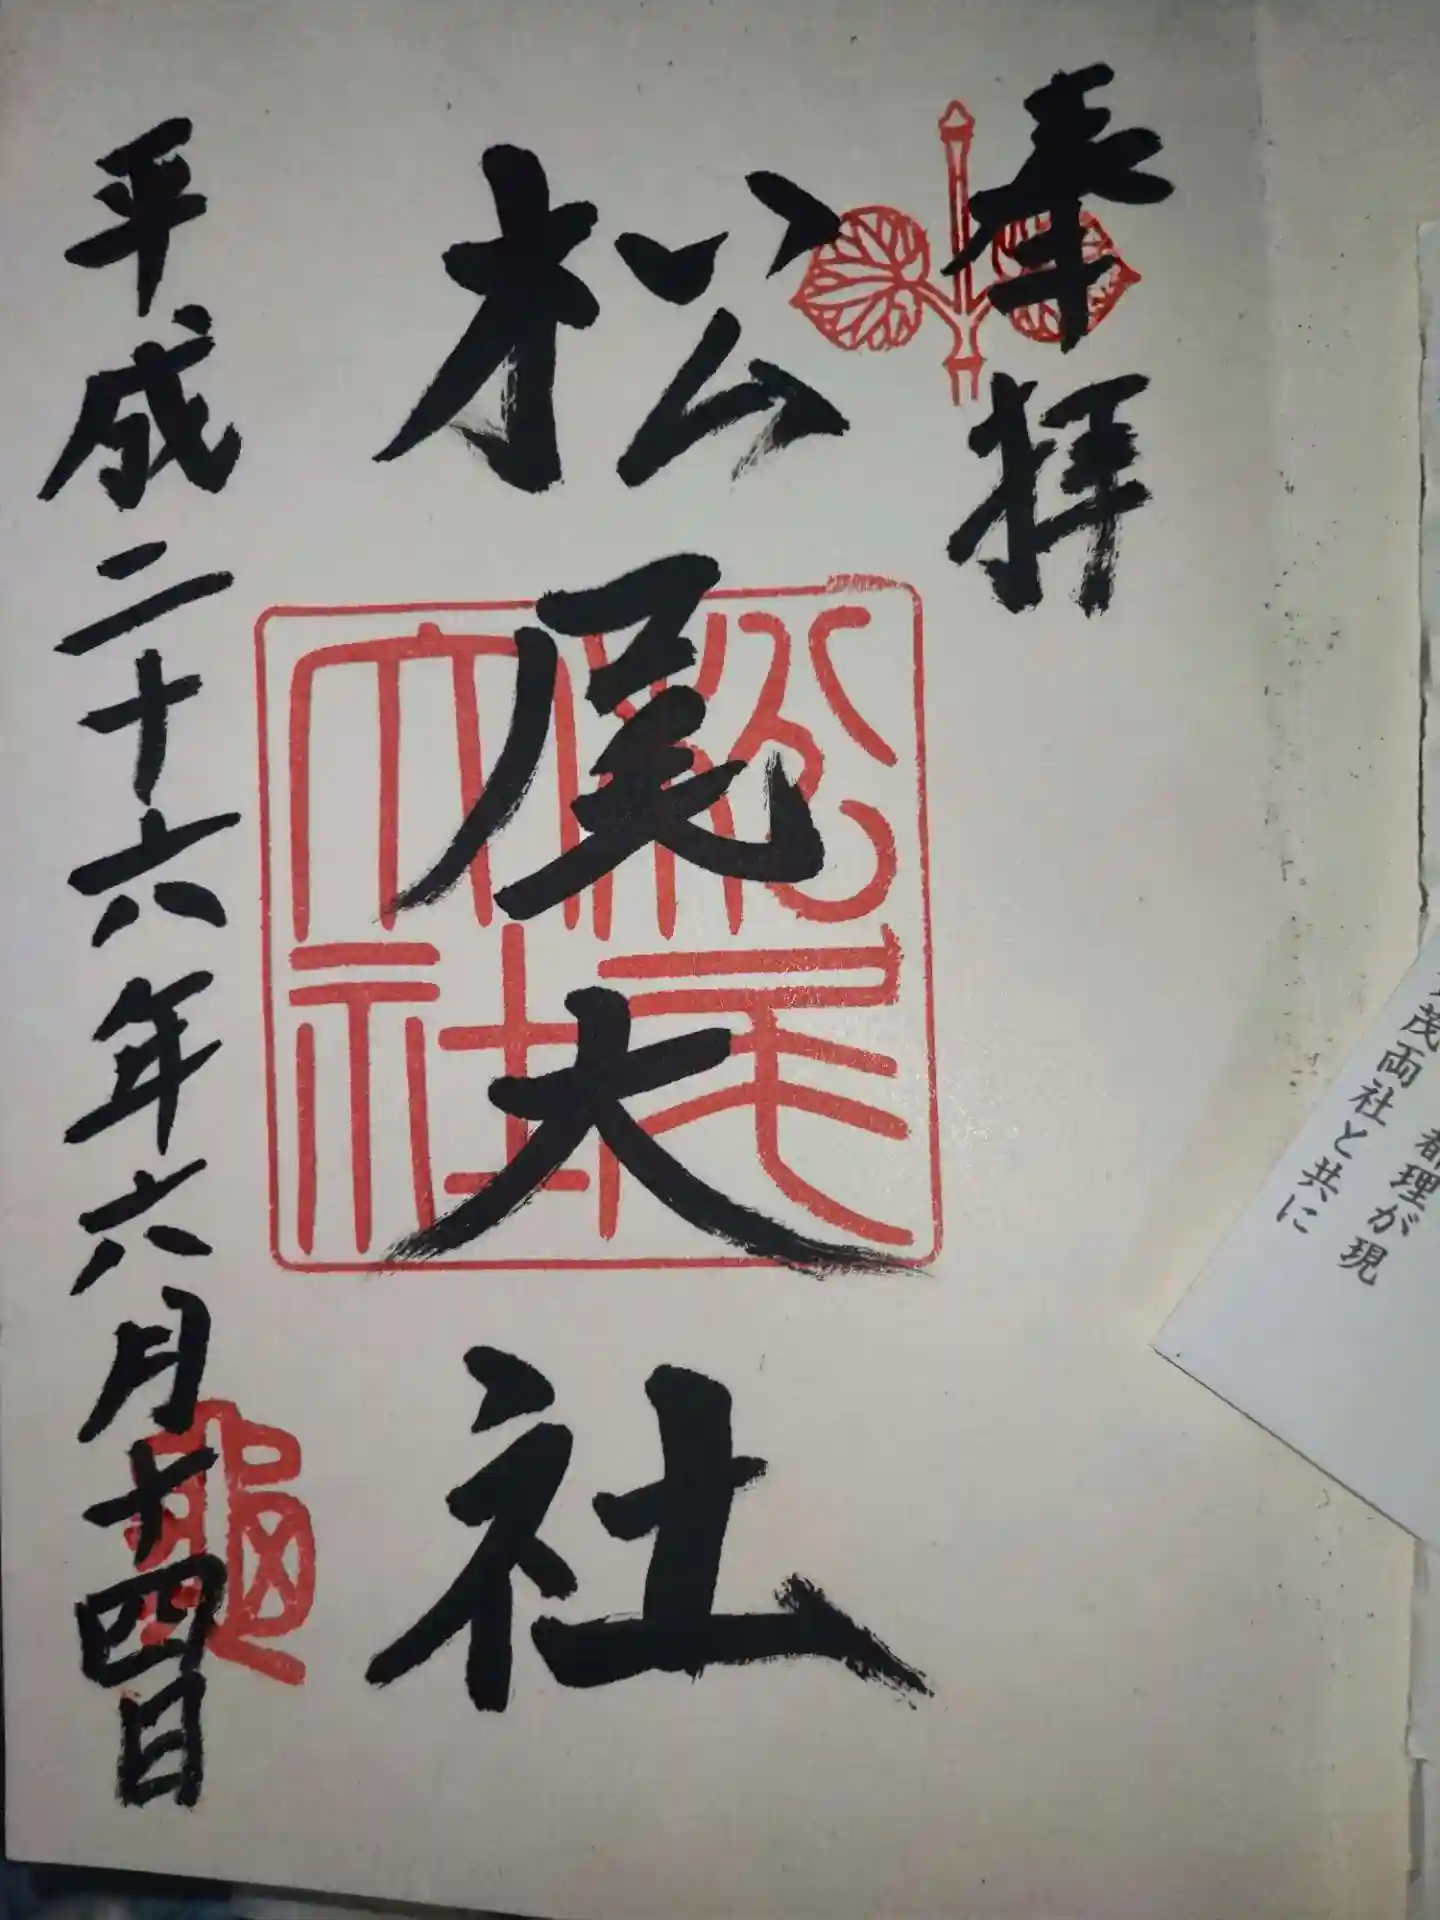 奉拝
松尾大社
平成二十六年六月十四日
松尾大社
都理が現
茂両社と共に